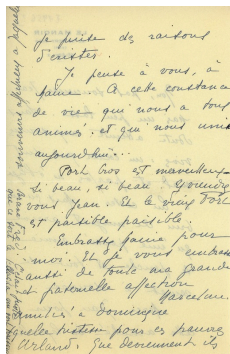 Je puise des raisons
d'exister.
Je pense à vous, à
Jaime. A cette constance
de vie qui nous a tous
animés et qui nous unit
aujourd'hui...
Port Cros est merveilleux
Si beau, si beau.
vous Jean. Et le vieux Port
est paisible paisible.
Embrasse Jaime pour
moi. Et je vous embrasse
aussi de toute ma grande
et fraternelle affection
Marceline.
amitiés à Dominique
quelle tristesse pour ces pauvres
Arland. Que deviennent ils